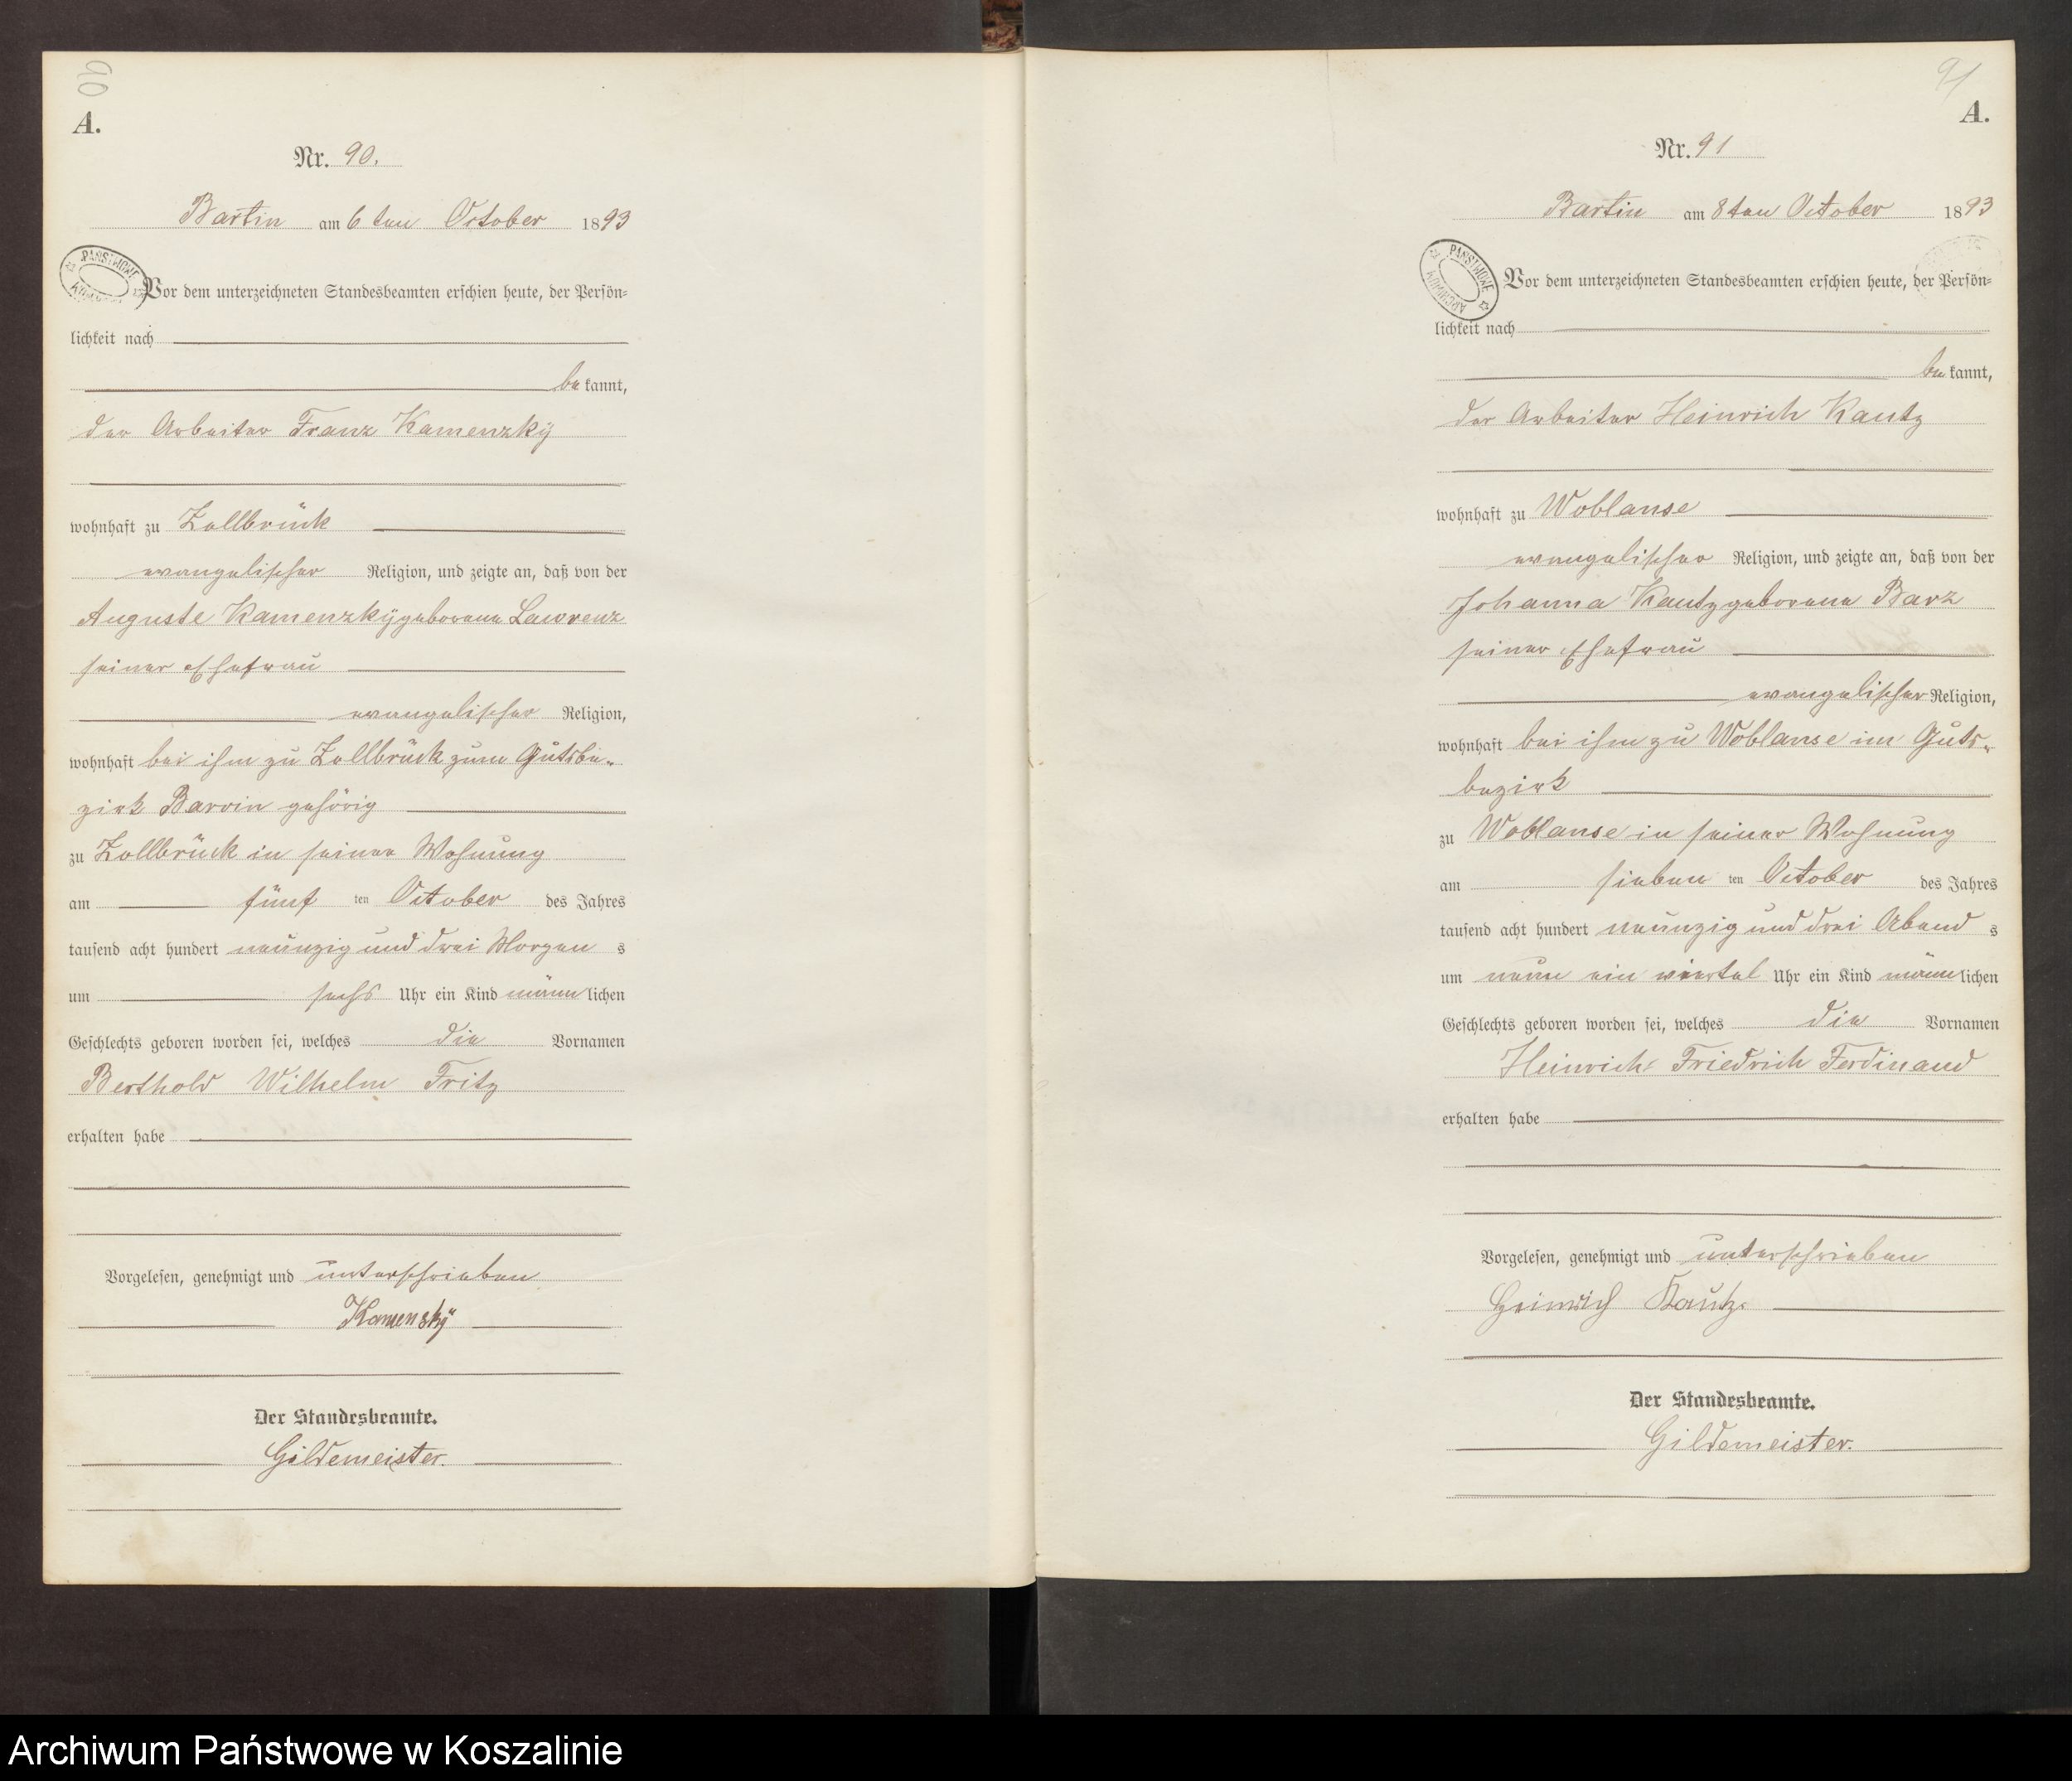 90
A.
Nr. 90.
Bartin am 6 ten October 1893
PAŃSTWOWE
Vor dem unterzeichneten Standesbeamten erschien heute, der Persön=
lichkeit nach
be kannt,
der Arbeiter Franz Kamenzky
wohnhaft zu Zollbrück
evangelischer Religion, und zeigte an, daß von der
Auguste Kamenzky geborene Lawrenz
seiner Ehefrau
evangelischer Religion,
wohnhaft bei ihm zu Zollbrück zum Gutsbe=
zirk Barvin gehörig
zu Zollbrück in seiner Wohnung
am fünf ten October des Jahres
tausend acht hundert neunzig und drei Morgen s
um sechs Uhr ein Kind männ lichen
Geschlechts geboren worden sei, welches die Vornamen
Berthold Wilhelm Fritz
erhalten habe
Vorgelesen, genehmigt und unterschrieben
Kamensky
Der Standesbeamte.
Gildemeister.
91
A.
Nr. 91
Bartin am 8 ten October 1893
PAŃSTWOWE ARCHIWUM
Vor dem unterzeichneten Standesbeamten erschien heute, der Persön=
lichkeit nach
be kannt,
der Arbeiter Heinrich Kautz
wohnhaft zu Woblanse
evangelischer Religion, und zeigte an, daß von der
Johanna Kautz geborene Barz
seiner Ehefrau
evangelischer Religion,
wohnhaft bei ihm zu Woblanse im Guts=
bezirk
zu Woblanse in seiner Wohnung
am sieben ten October des Jahres
tausend acht hundert neunzig und drei Abend s
um neun ein viertel Uhr ein Kind männ lichen
Geschlechts geboren worden sei, welches die Vornamen
Heinrich Friedrich Ferdinand
erhalten habe
Vorgelesen, genehmigt und unterschrieben
Heinrich Kautz.
Der Standesbeamte.
Gildemeister.
Archiwum Państwowe w Koszalinie